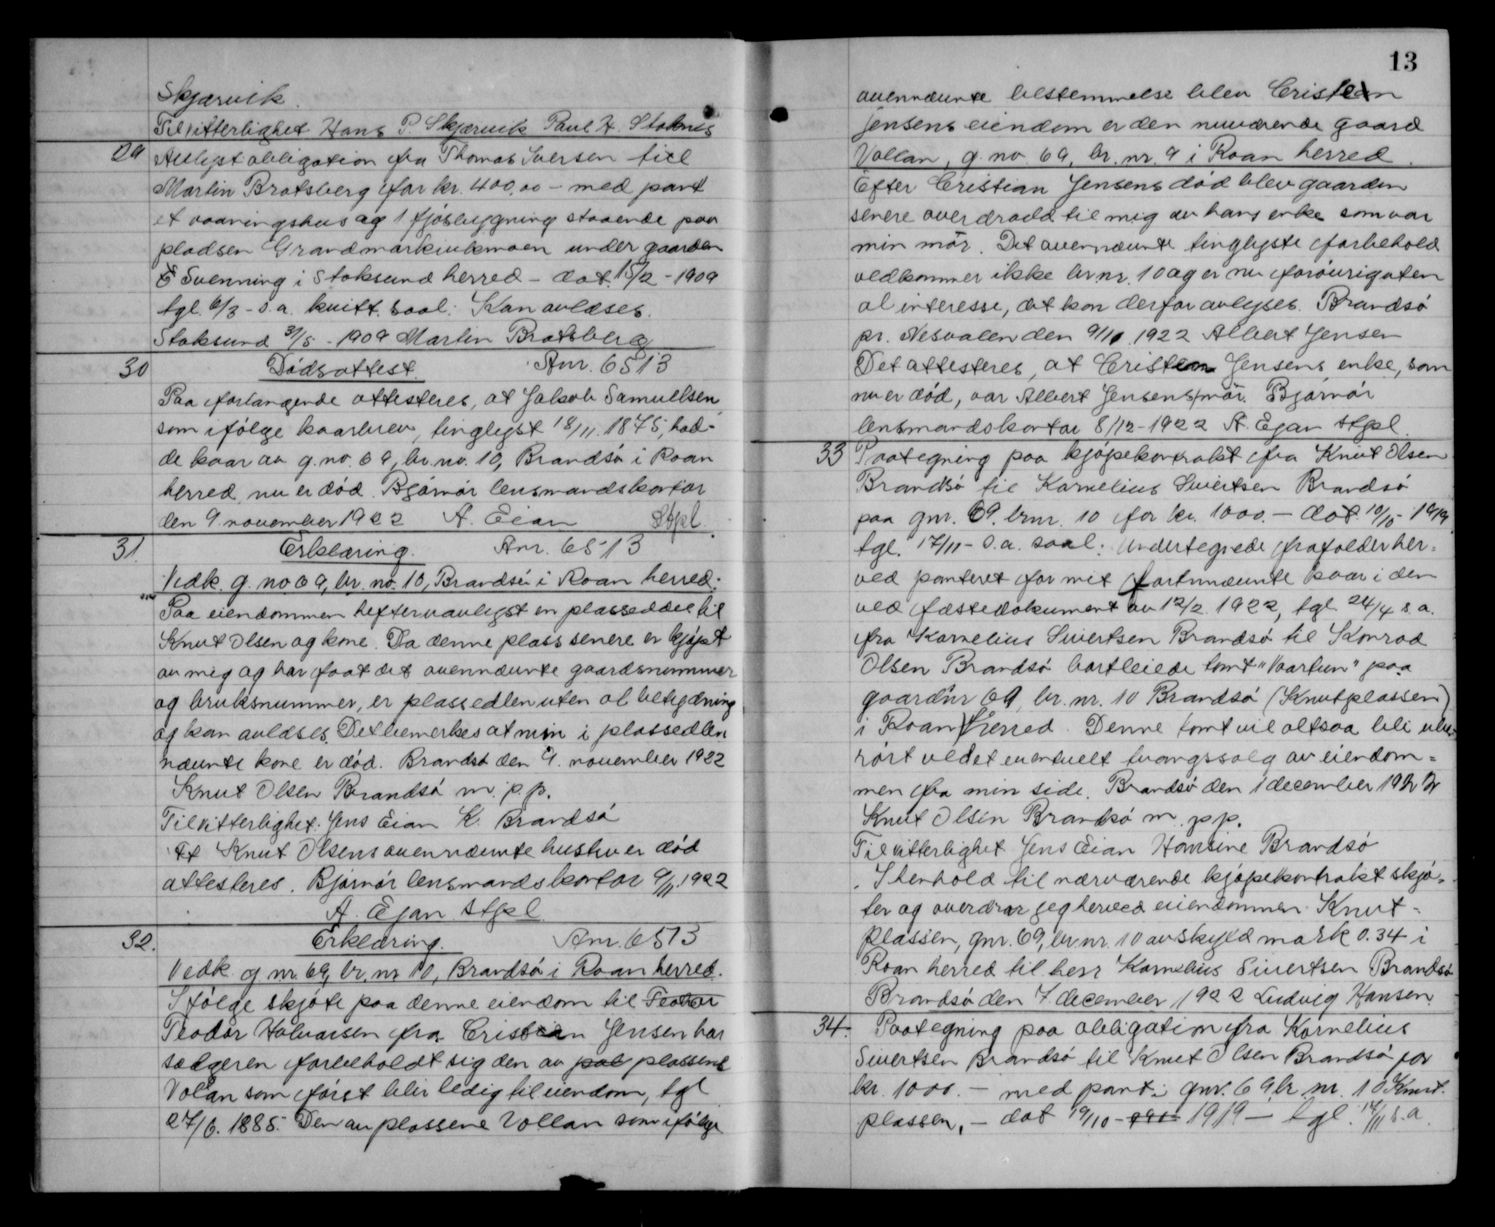 Skjærvik.
Til vitterlighet Hans P. Skjærvik Paul H. Stoknes
29 Avlyst obligation fra Thomas Iversen till
Martin Bratsberg for kr. 400,00 – med pant
et vaaningshus og 1 fjøsbygning staaende paa
pladsen Grandmarkinkmoen under gaarden
Svenning i Stoksund herred – dat. 15/2 - 1909
tgl. 6/3 - s.a. kvitt. saal: Kan avlæses.
Stoksund 31/5 - 1909 Martin Bratsberg
30 Dødsattest. Anr. 6513
Paa forlangende attesteres, at Jakob Samuelsen
som ifølge kaarbrev, tinglyst 18/11. 1875, had-
de kaar av g.no. 69, br.no. 10, Brandsø i Roan
herred nu er død. Bjørnør lensmandskontor
den 9. november 1922 A. Eian Stpl.
31. Erklæring. Anr. 6513
Vedk. g.no 69, br. no. 10, Brandsø i Roan herred.
Paa eiendommen hefter uavlyst en plasseddel til
Knut Olsen og kone. Da denne plass senere er kjøpt
av mig og har faat det ovennævnte gaardsnummer
og bruksnummer, er plassedlen uten al betydning
og kan avlæses. Det bemerkes at min i plassedlen
nævnte kone er død. Brandsø den 9. november 1922
Knut Olsen Brandsø m. p.p.
Til vitterlighet: Jens Eian K. Brandsø
At Knut Olsens ovennævnte hustru er død
attesteres. Bjørnør lensmandskontor 9/11 1922
A. Ejan stpl.
32. Erklæring. Anr. 6513
Vedk. g nr. 69, br. nr 10, Brandsø i Roan herred.
I følge skjøte paa denne eiendom til Teodor
Teodor Halvarsen fra Cristian Jensen har
sælgeren forbeholdt sig den av plassene
Vollan som først blir ledig til eiendom, tgl
27/6. 1885. Den av plassene Vollan som ifølge
13
ovennævnte bestemmelse blev Cristian
Jensens eiendom er den nuværende gaard
Vollan, g. no. 69, br. nr. 9 i Roan herred.
Efter Cristian Jensens død blev gaarden
senere overdradd til mig av hans enke som var
min mor. Det ovennævnte tinglyste forbehold
vedkommer ikke br.nr. 10 og er nu forøvrig uten
al interesse, det kan derfor avlyses. Brandsø
pr. Nesvalen den 9/11 1922 Albert Jensen
Det attesteres, at Cristian Jensens enke, som
nu er død, var Albert Jensens mor. Bjørnør
lensmandskontor 8/12 - 1922 A. Ejan stpl.
33 Paategning paa kjøpekontrakt fra Knut Olsen
Brandsø til Kornelius Sivertsen Brandsø
paa gnr. 69. brnr. 10 for kr. 1000. – dat 19/10 - 1919
tgl. 17/11 - s.a. saal: Undertegnede frafolder her-
ved panteret for mit fortnævnte kaar i den
ved fæstedokument av 12/2. 1922, tgl. 24/4 s.a.
fra Kornelius Sivertsen Brandsø til Konrad
Olsen Brandsø bortleiede tomt "Vaartun" paa
gaardnr 69, br. nr. 10 Brandsø (Knutplassen)
i Roan herred. Denne tomt vil altsaa bli ube-
rørt ved et eventuelt tvangssalg av eiendom-
men fra min side. Brandsø den 1 december 1922
Knut Olsen Brandsø m. p.p.
Til vitterlighet Jens Eian Hansine Brandsø
I henhold til nærværende kjøpekontrakt skjø-
ter og overdrar jeg herved eiendommen Knut-
plassen, gnr. 69, br.nr. 10 av skyld mark 0.34 i
Roan herred til herr Kornelius Sivertsen Brandsø
Brandsø den 7. december 1922 Ludvig Hansen.
34. Paategning paa obligation fra Kornelius
Sivertsen Brandsø til Knut Olsen Brandsø for
kr. 1000. – med pant i gnr. 69 br. nr. 10 Knut-
plassen, – dat 19/10 - 1919 – tgl. 17/11 s.a.